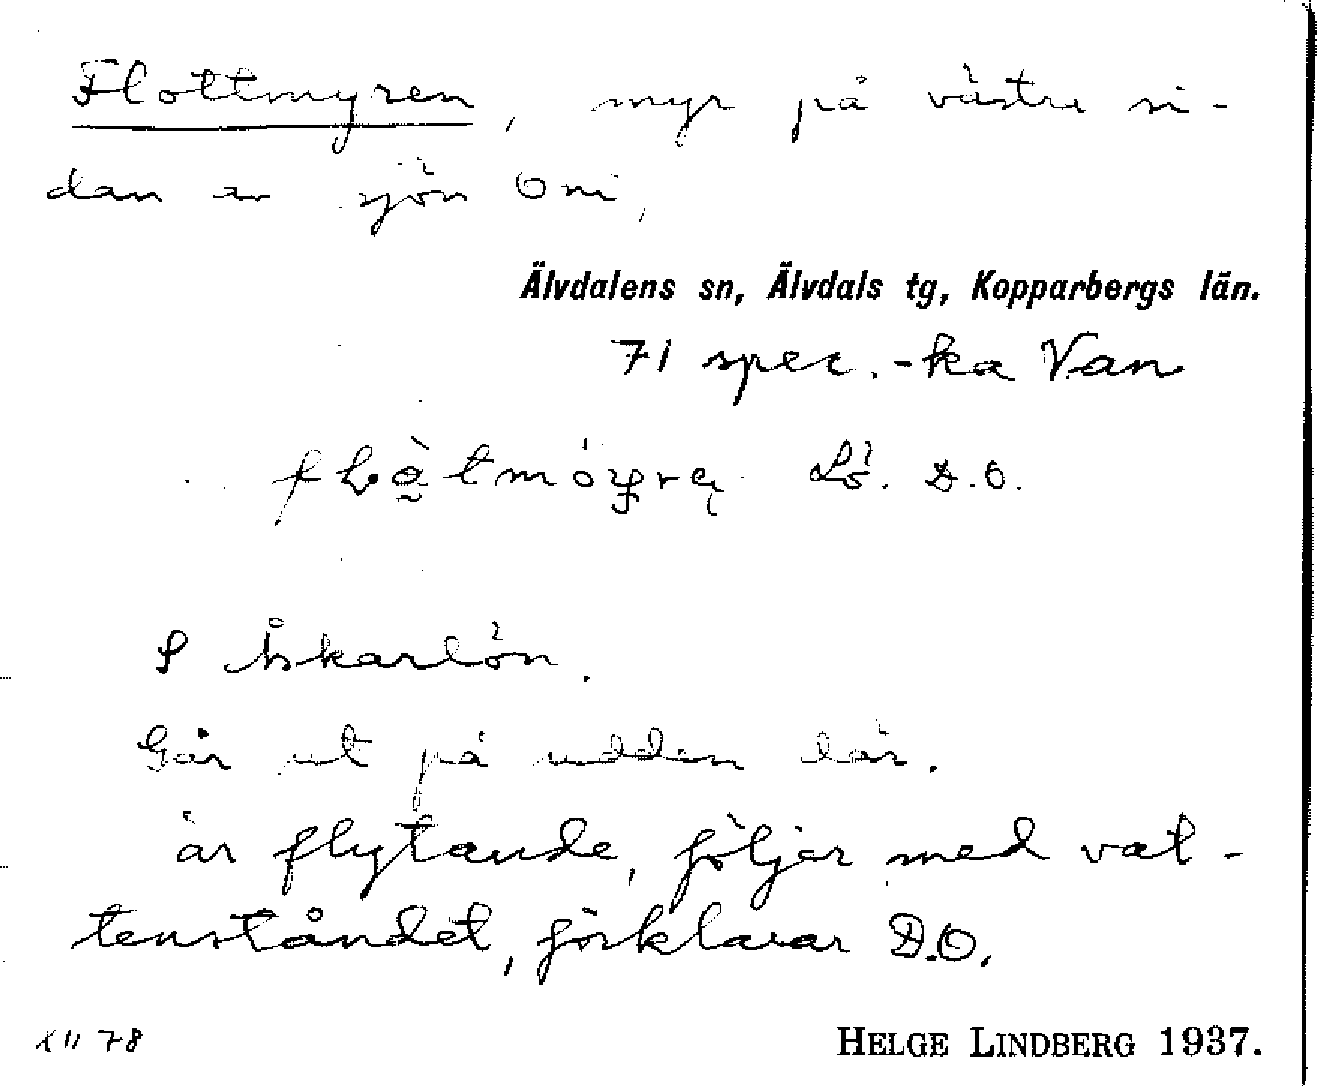 Flottmyren, myr på västra si-
dan av sjön Oni,
Älvdalens sn, Älvdals tg, Kopparbergs län.
71 spec.-ka Van
Lö. D.O.
S Åskarlön.
Går ut på udden där.
är flytande, följer med vat-
tenståndet, förklarar D.O.
XII 78
HELGE LINDBERG 1937.